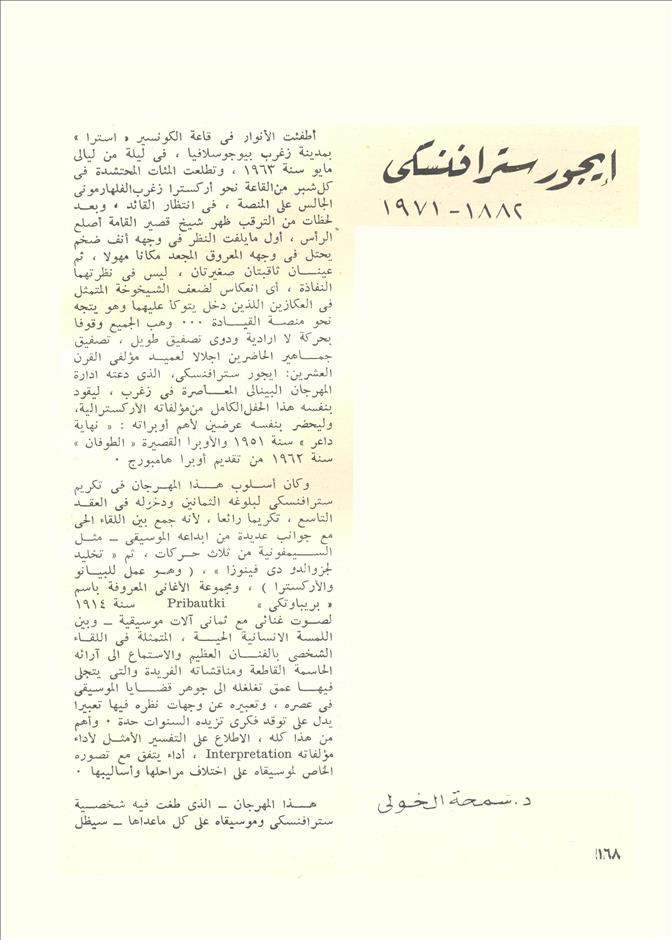 إيجور سترافنسكى
١٨٨٢ - ١٩٧١
أطفئت الأنوار فى قاعة الكونسير « استرا »
بمدينة زغرب بيوجوسلافيا ، فى ليلة من ليالى
مايو سنة ١٩٦٣ ، وتطلعت المئات المحتشدة فى
كل شبر من القاعة نحو أركسترا زغرب الفلهارمونى
الجالس على المنصة ، فى انتظار القائد ، وبعد
لحظات من الترقب ظهر شيخ قصير القامة أصلع
الرأس ، أول مايلفت النظر فى وجهه أنف ضخم
يحتل فى وجهه المعروق المجعد مكانا مهولا ، ثم
عينان ثاقبتان صغيرتان ، ليس فى نظرتهما
النفاذة ، أى انعكاس لضعف الشيخوخة المتمثل
فى العكازين اللذين دخل يتوكأ عليهما وهو يتجه
نحو منصة القيادة ٠٠٠ وهب الجميع وقوفا
بحركة لا ارادية ودوى تصفيق طويل ، تصفيق
جماهير الحاضرين اجلالا لعميد مؤلفى القرن
العشرين: ايجور سترافنسكى، الذى دعته ادارة
المهرجان البينالى المعاصرة فى زغرب ، ليقود
بنفسه هذا الحفل الكامل من مؤلفاته الأركسترالية،
وليحضر بنفسه عرضين لأهم أوبراته : « نهاية
داعر » سنة ١٩٥١ والأوبرا القصيرة « الطوفان »
سنة ١٩٦٢ من تقديم أوبرا هامبورج ٠
وكان أسلوب هذا المهرجان فى تكريم
سترافنسكى لبلوغه الثمانين ودخوله فى العقد
التاسع ، تكريما رائعا ، لأنه جمع بين اللقاء الحى
مع جوانب عديدة من ابداعه الموسيقى – مثل
السيمفونية من ثلاث حركات ، ثم « تخليد
لجزوالدو دى فينوزا » ، ( وهو عمل للبيانو
والأركسترا ) ، ومجموعة الأغانى المعروفة باسم
« بريباوتكى » Pribautki سنة ١٩١٤
لصوت غنائى مع ثمانى آلات موسيقية – وبين
اللمسة الانسانية الحية ، المتمثلة فى اللقاء
الشخصى بالفنان العظيم والاستماع الى آرائه
الحاسمة القاطعة ومناقشاته الفريدة والتى يتجلى
فيها عمق تغلغله الى جوهر قضايا الموسيقى
فى عصره ، وتعبيره عن وجهات نظره فيها تعبيرا
يدل على توقد فكرى تزيده السنوات حدة ٠ وأهم
من هذا كله ، الاطلاع على التفسير الأمثل لأداء
مؤلفاته Interpretation ، أداء يتفق مع تصوره
الخاص لموسيقاه على اختلاف مراحلها وأساليبها ٠
هذا المهرجان – الذى طغت فيه شخصية
سترافنسكى وموسيقاه على كل ماعداها – سيظل
د. سمحة الخولى
١٦٨